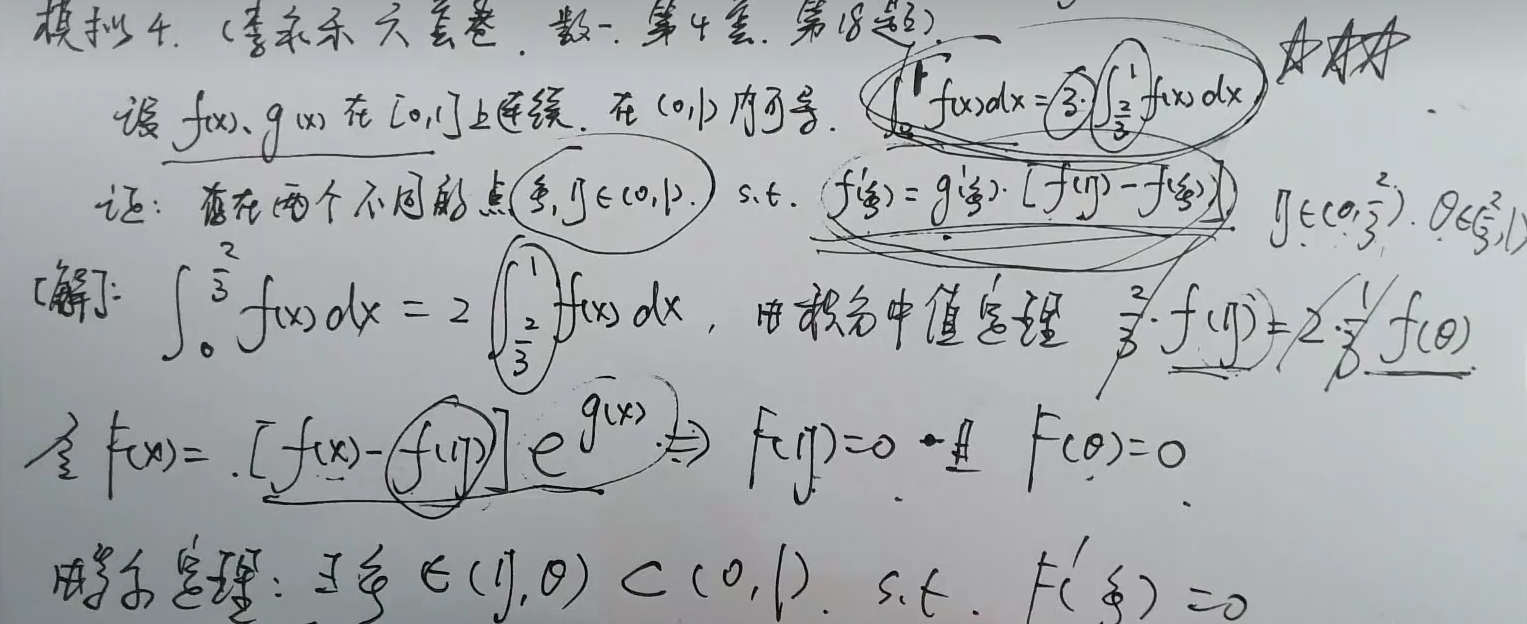 模拟4.（李永乐六套卷.数一.第4套.第18题）.
设 f(x)、g(x) 在 [0,1] 上连续.在 (0,1) 内可导. ∫₀¹ f(x)dx = 3·∫_{2/3}^{1} f(x)dx
证：存在两个不同的点 ξ,η∈(0,1). s.t. f'(ξ) = g'(ξ)·[f(η)-f(ξ)] η∈(0,2/3).θ∈(2/3,1)
[解]: ∫₀^{2/3} f(x)dx = 2∫_{2/3}^{1} f(x)dx, 由积分中值定理 2/3·f(η)=2·1/3 f(θ)
令 F(x)=.[f(x)-f(η)] e^{g(x)}. ⇒ F(η)=0 且 F(θ)=0
由罗尔定理: ∃ξ∈(η,θ)⊂(0,1). s.t. F'(ξ)=0